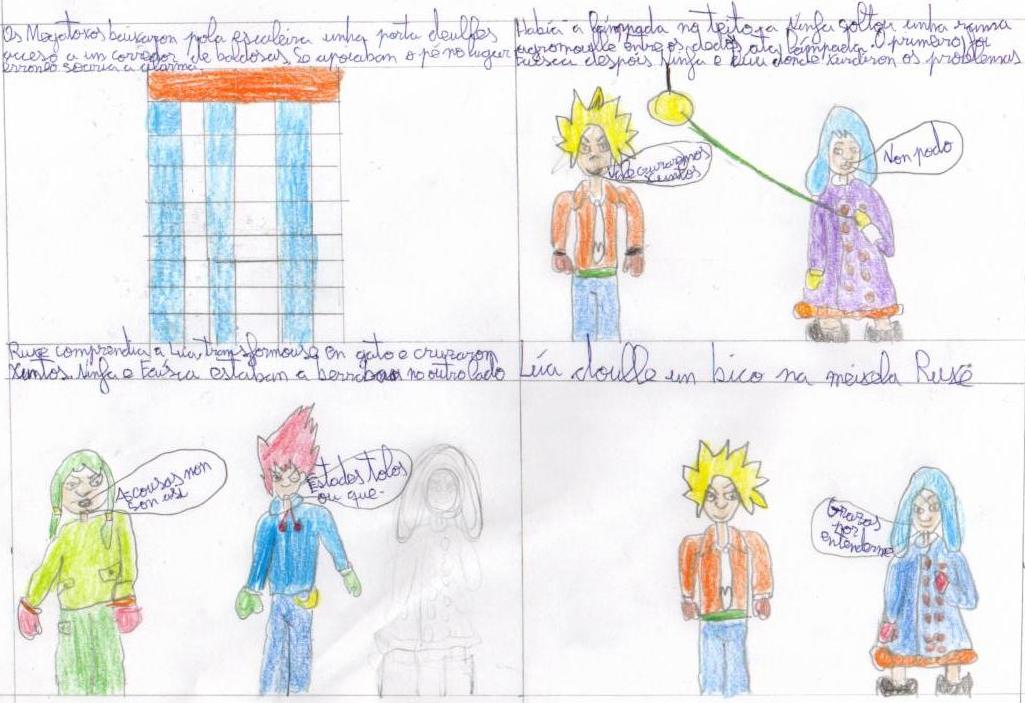 Os Megatoxos baixaron pola escaleira unha porta deulles
acceso a un corredor de baldosas. Se apoiaban o pé no lugar
erroneo soaría a alarma.
Había a lámpada no teito, a Ninfa soltou unha rama
entre os dedos ata lámpada. O primeiro foi
Faísca despois Ninfa e Lúa donde xurdiron os problemas
Vale cruzaremos
xuntos
Non podo
Ruxe comprendía a Lúa, transformouse en gato e cruzaron
xuntos. Ninfa e Faísca estaban a berrar no outro lado
As cousas non
son así
Estades tolos
ou que.
Lúa doulle un bico na meixela Ruxe
Grazas
por
entenderme